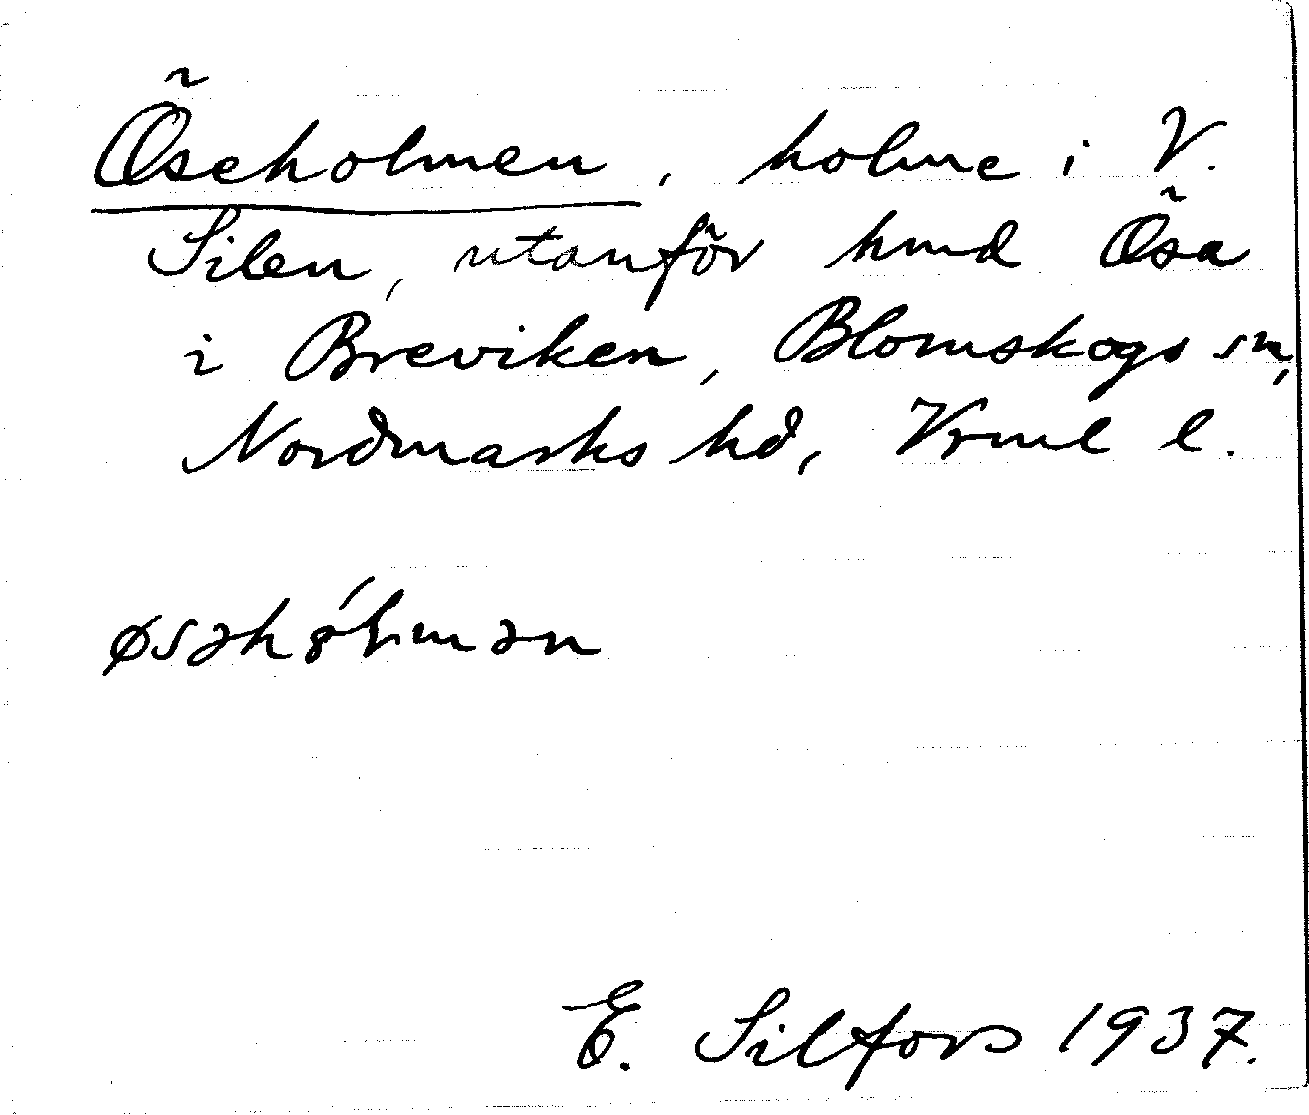 Öseholmen, holme i V.
Silen, utanför hmd Ösa
i Breviken, Blomskogs sn,
Nordmarks hd, Vrml l.
øsəhól·mən
E. Silfors 1937.